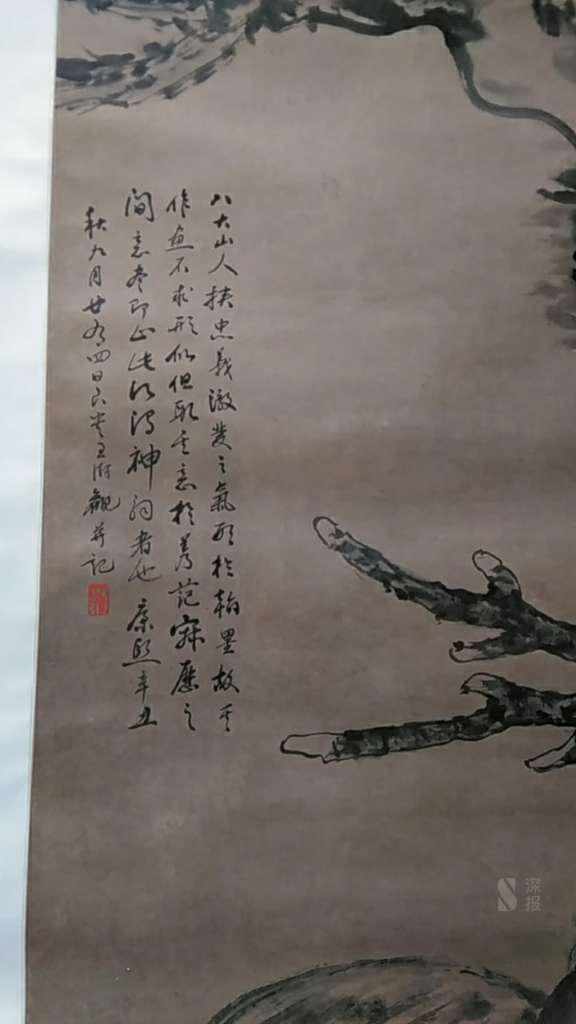 八大山人挟忠義激發之氣形於翰墨故其
作畫不求形似但取其意於蒼茫寂歷之
間意盡即止此所得神而者也康熙辛丑
秋九月廿有四日良常王澍觀并記
深报